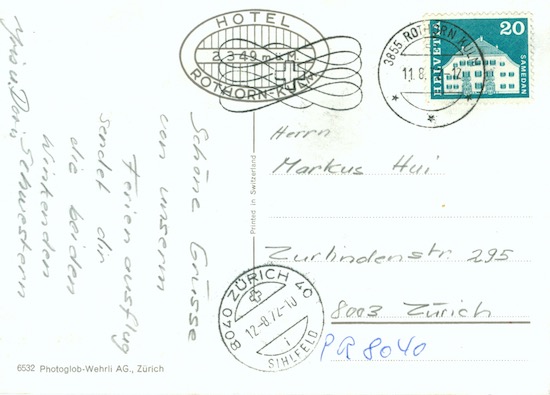 HOTEL
2349 m ü. M.
ROTHORN-KULM
3855 ROTHORN KULM
11.8. -12
HELVETIA
20
SAMEDAN
Schöne Grüsse
von unserm
Ferienausflug
sendet dir
die beiden
winkenden
Schwestern
Doris
Printed in Switzerland
Herrn
Markus Hui
Zurlindenstr. 295
8003 Zürich
PR 8040
8040 ZÜRICH 40
12-8.72-10
i
SIHLFELD
6532 Photoglob-Wehrli AG., Zürich